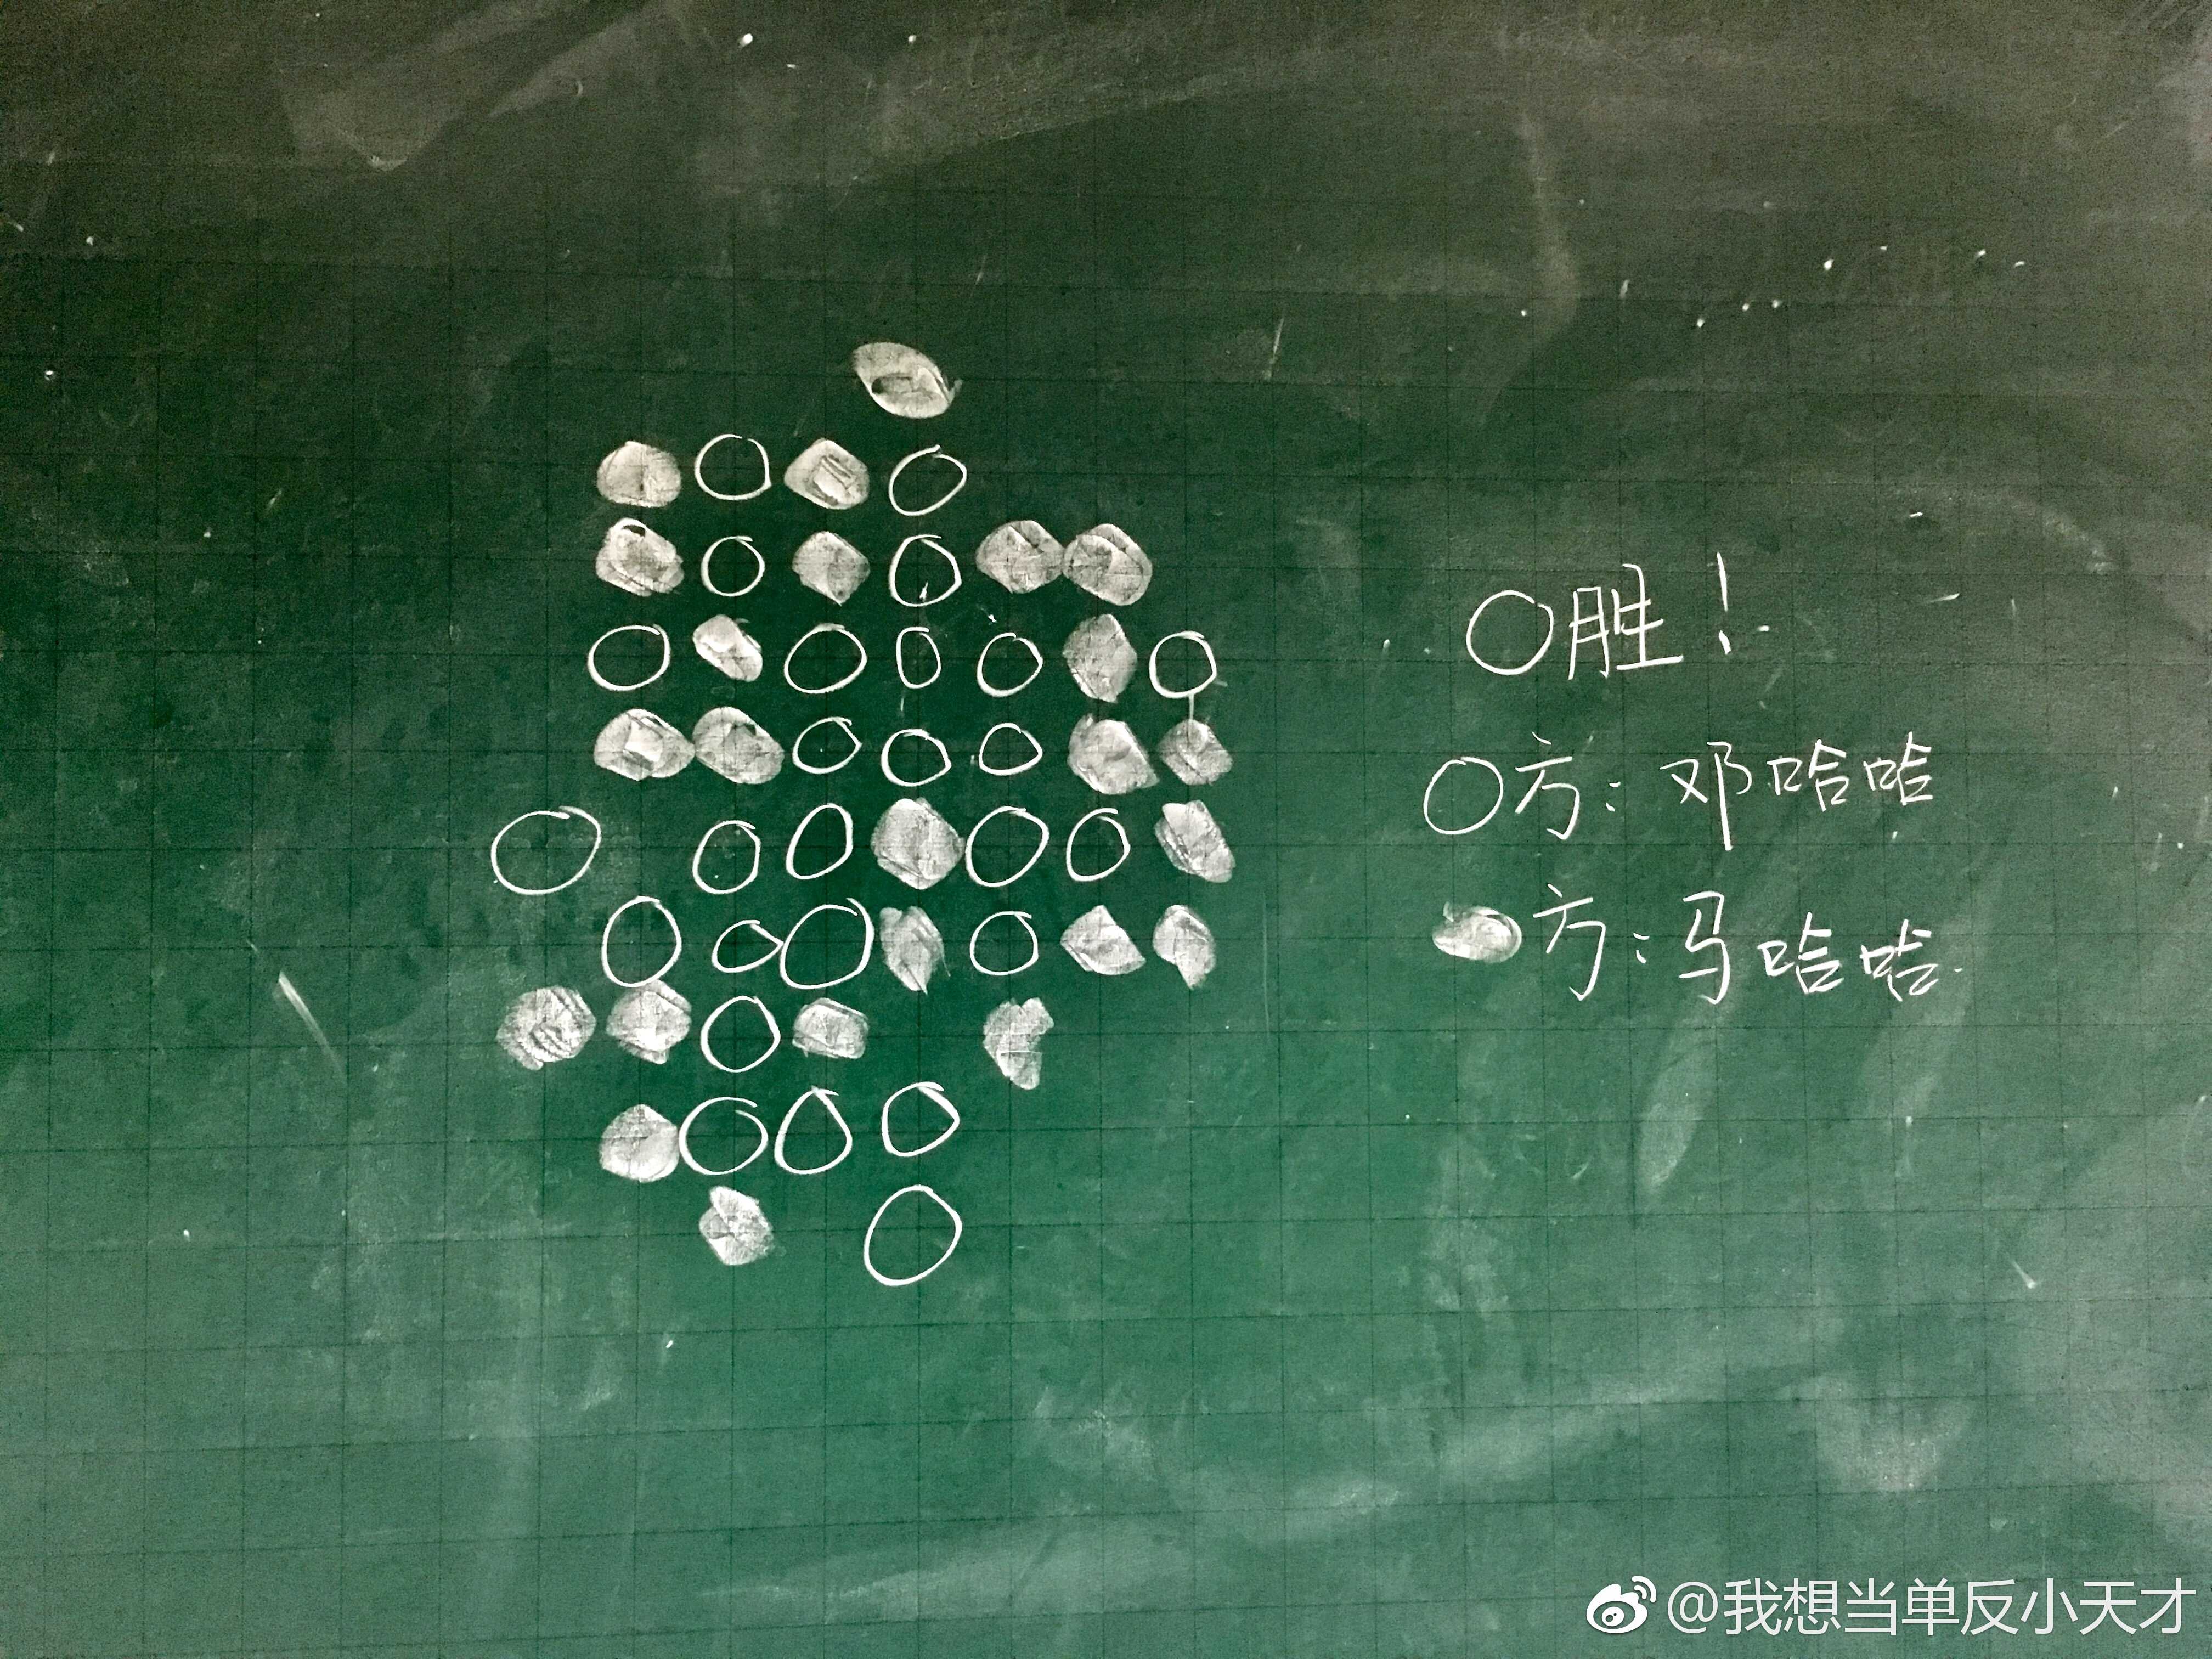 ○胜！
○方：邓哈哈
方：马哈哈.
@我想当单反小天才